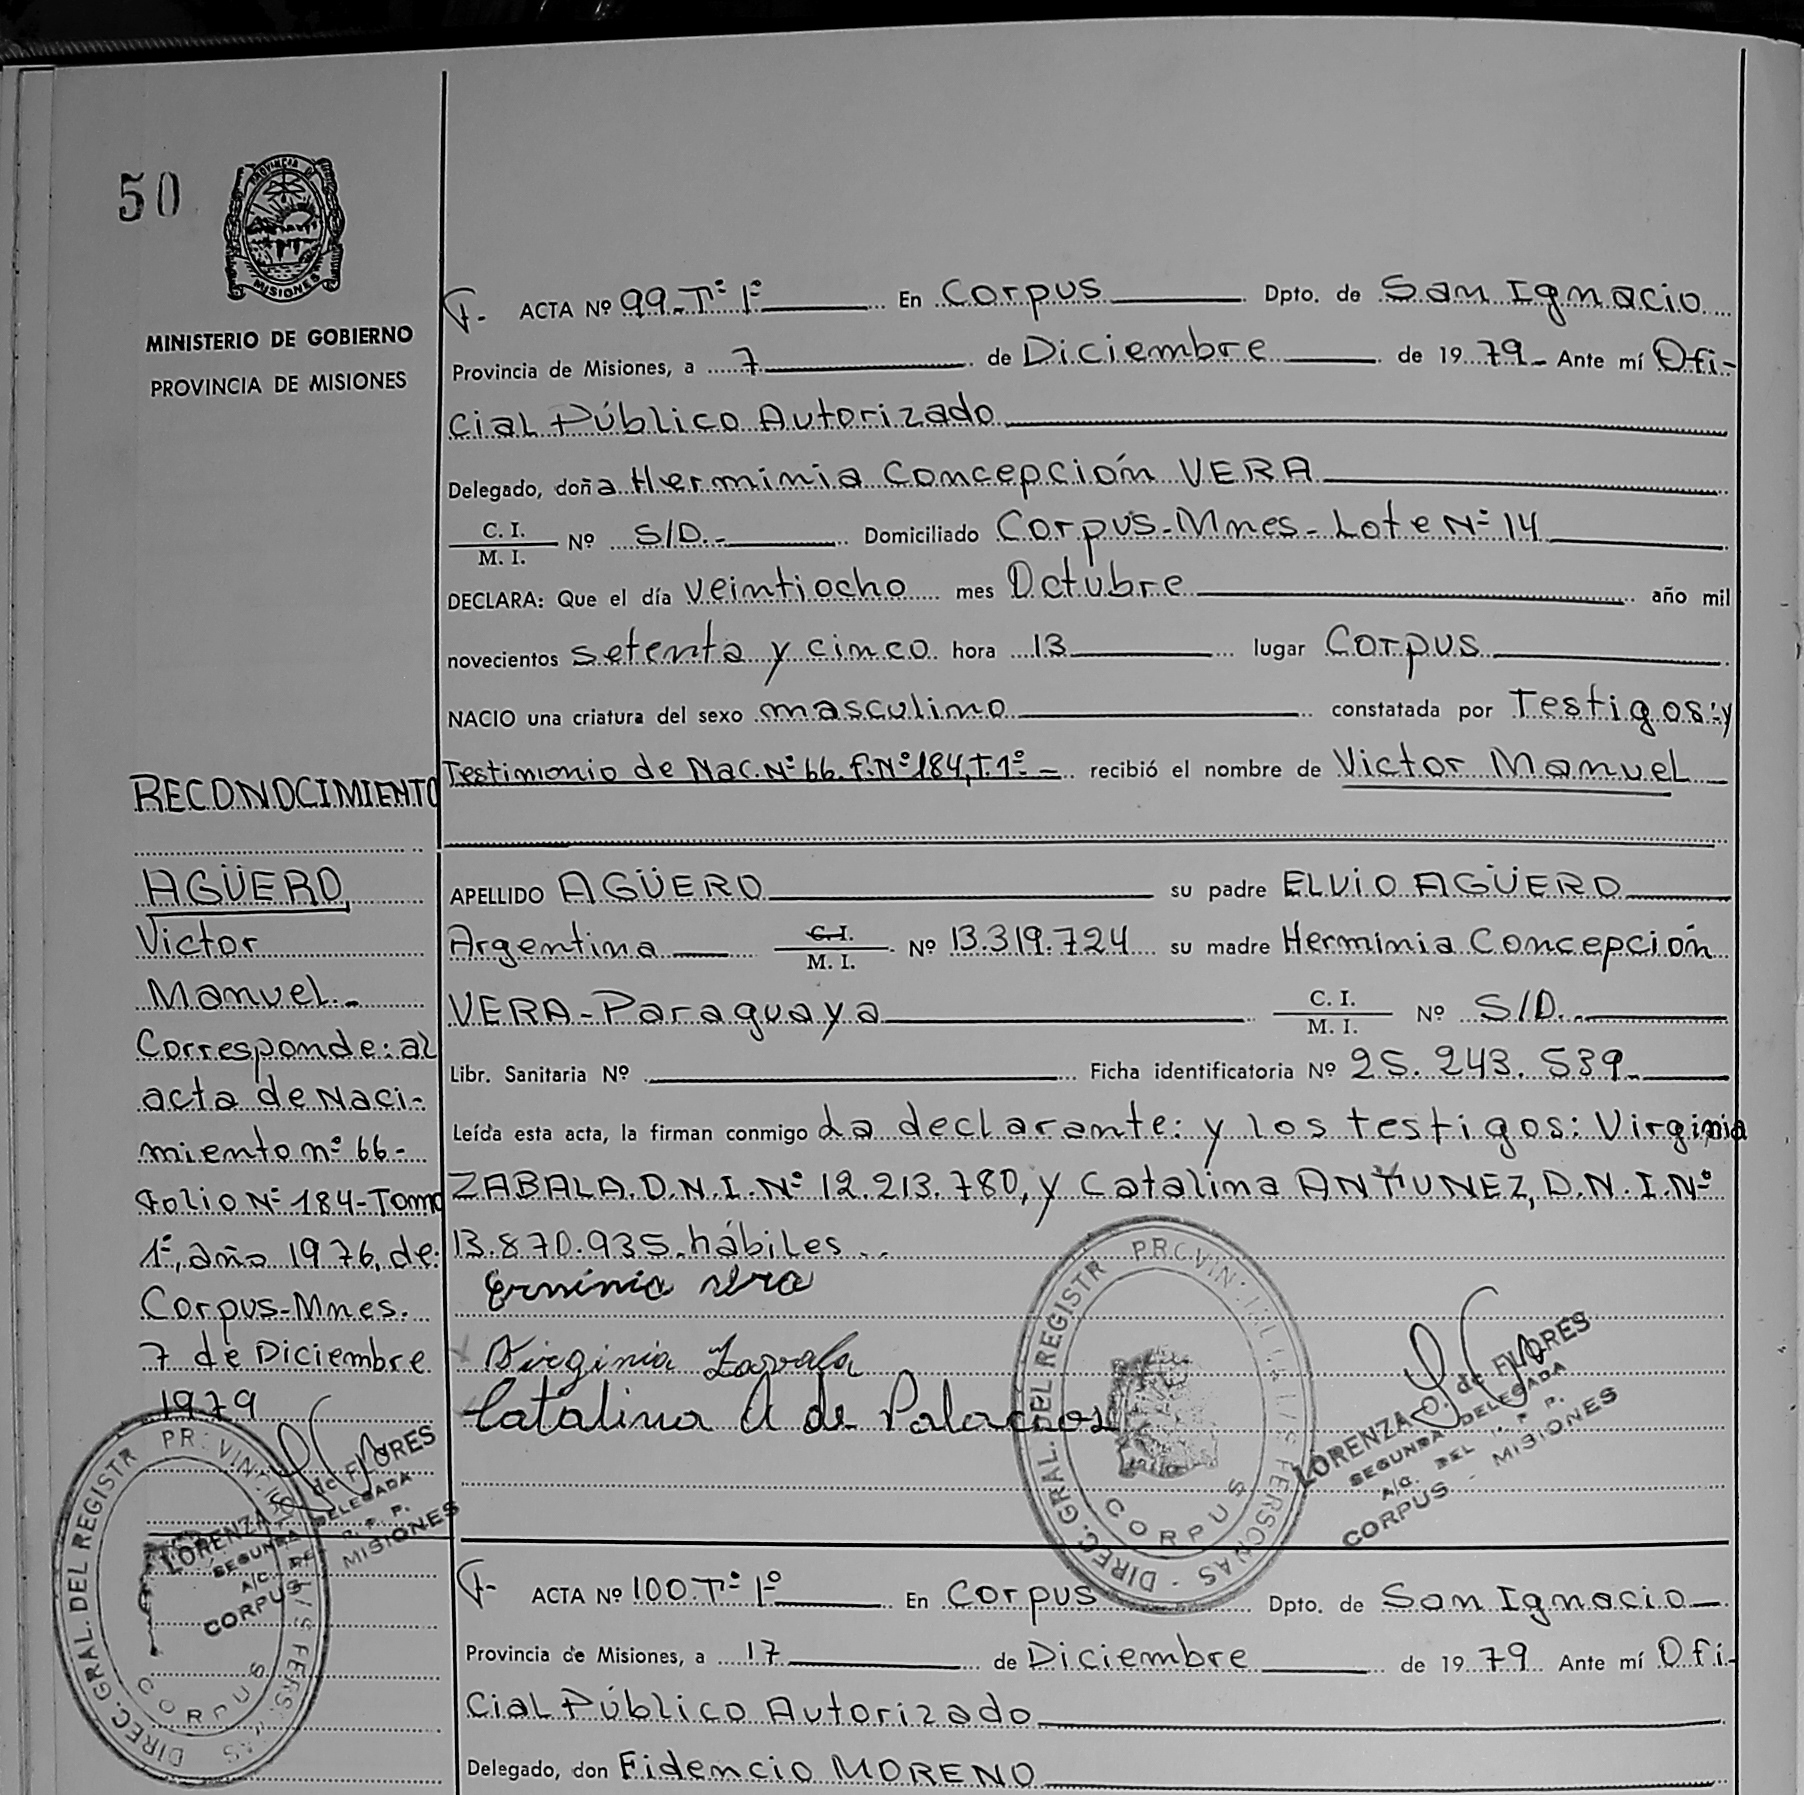 50
PROVINCIA DE
MISIONES
MINISTERIO DE GOBIERNO
PROVINCIA DE MISIONES
ACTA Nº 99-Tº 1º En Corpus Dpto. de San Ignacio
Provincia de Misiones, a 7 de Diciembre de 1979- Ante mí Ofi-
cial Público Autorizado
Delegado, doña Herminia Concepción VERA
C. I.
M. I. Nº S/D.- Domiciliado Corpus-Mnes-Lote Nº 14
DECLARA: Que el día veintiocho mes Octubre año mil
novecientos setenta y cinco hora 13 lugar Corpus
NACIO una criatura del sexo masculino constatada por Testigos:y
Testimonio de Nac. Nº 66. f. Nº 184, T. 1º - recibió el nombre de Victor Manuel
APELLIDO AGÜERO su padre ELVIO AGÜERO
Argentina C.I.
M. I. Nº 13.319.724 su madre Herminia Concepción
VERA-Paraguaya C. I.
M. I. Nº S/D.
Libr. Sanitaria Nº Ficha identificatoria Nº 25.243.539-
Leída esta acta, la firman conmigo La declarante: y los testigos: Virginia
ZABALA. D.N.I. Nº 12.213.780, y Catalina ANTUNEZ, D.N.I. Nº
13.870.935. hábiles..
Erminia vera
Virginia Zavala
Catalina A de Palacios
DIREC. GRAL. DEL REGISTR PROVIN
CORPUS
LORENZA O. de FLORES
SEGUNDA DELEGADA
A/C. DEL R. P. P.
CORPUS - MISIONES
RECONOCIMIENTO
AGÜERO
Victor
Manuel.-
Corresponde: al
acta de Naci-
miento nº 66-
folio Nº 184-Tomo
1º, año 1976, de:
Corpus-Mnes.
7 de Diciembre
1979
DIREC. GRAL. DEL REGISTR PROVIN
CORPUS
LORENZA de FLORES
SEGUNDA DELEGADA
CORPUS MISIONES
ACTA Nº 100.Tº 1º En Corpus Dpto. de San Ignacio
Provincia de Misiones, a 17 de Diciembre de 1979 Ante mí Ofi-
cial Público Autorizado
Delegado, don Fidencio MORENO